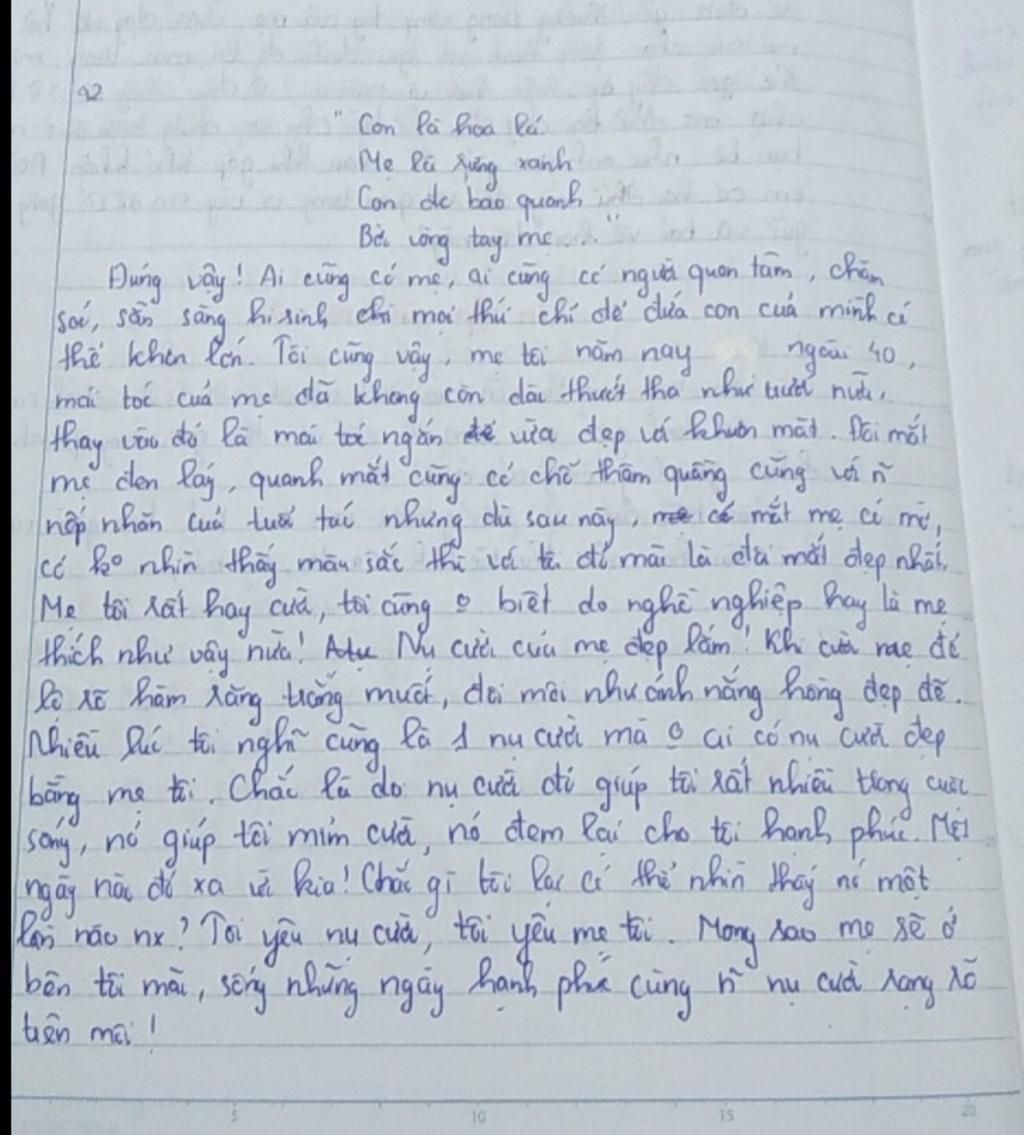 92.
" Con là hoa lá
Mẹ là rừng xanh
Con đc bao quanh
Bởi vòng tay mẹ ... "
Đúng vậy! Ai cũng có mẹ, ai cũng có người quan tâm, chăm
sóc, sẵn sàng hi sinh mọi thứ chỉ để đứa con của mình có
thể khôn lớn. Tôi cũng vậy, mẹ tôi năm nay ngoài 40,
mái tóc của mẹ đã không còn dài thướt tha như trước nữa,
thay vào đó là mái tóc ngắn vừa đẹp với khuôn mặt. Đôi mắt
mẹ đen láy, quanh mắt cũng có chỗ thâm quầng cùng với n~
nếp nhăn của tuổi tác nhưng dù sau này, mắt mẹ có mờ,
có ko nhìn thấy màu sắc thì với tôi đó mãi là đôi mắt đẹp nhất.
Mẹ tôi rất hay cười, tôi cũng o biết do nghề nghiệp hay là mẹ
thích như vậy nữa! Nụ cười của mẹ đẹp lắm! Khi cười mẹ để
lộ rõ hàm răng trắng muốt, đôi môi như ánh nắng hồng đẹp đẽ.
Nhiều lúc tôi nghĩ cũng là 1 nụ cười mà o ai có nụ cười đẹp
bằng mẹ tôi. Chắc là do nụ cười đó giúp tôi rất nhiều trong cuộc
sống, nó giúp tôi mỉm cười, nó đem lại cho tôi hạnh phúc. Một
ngày nào đó xa xôi kia! Chắc gì tôi lại có thể nhìn thấy nó một
lần nào nx? Tôi yêu nụ cười, tôi yêu mẹ tôi. Mong sao mẹ sẽ ở
bên tôi mãi, sống những ngày hạnh phúc cùng n~ nụ cười rạng rỡ
trên môi!
5 10 15 20